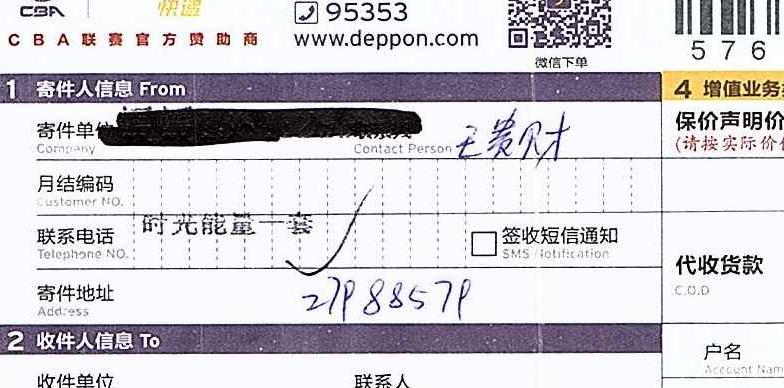 CBA 快递 95353
CBA联赛官方赞助商 www.deppon.com
微信下单
576
1 寄件人信息 From
寄件单位
Company Contact Person 王贵财
月结编码
Customer NO.
时光能量一套
联系电话
Telephone NO.
签收短信通知
SMS Notification
寄件地址
Address
27988579
2 收件人信息 To
收件单位 联系人
4 增值业务
保价声明价
(请按实际价
代收货款
C.O.D
户名
Account Nam